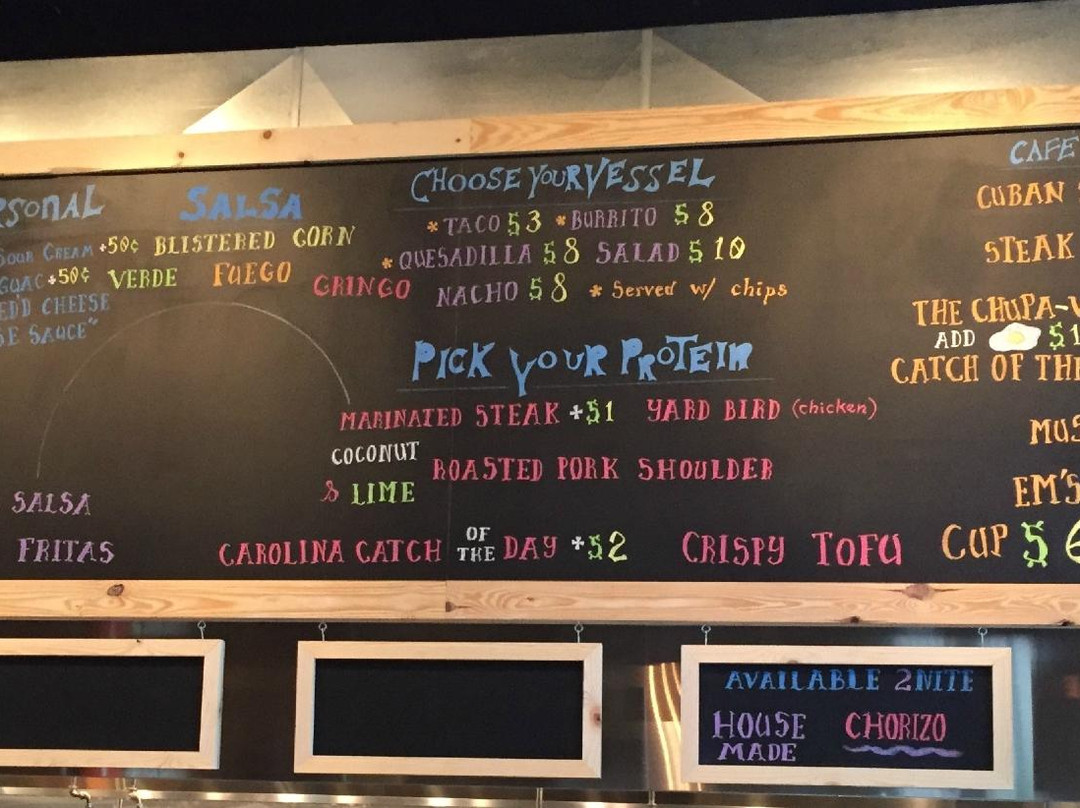 SALSA
SOUR CREAM +50¢
GUAC +50¢
CHEESE
SAUCE"
BLISTERED CORN
VERDE FUEGO GRINGO
SALSA
FRITAS
CHOOSE YOUR VESSEL
* TACO $3 * BURRITO $8
* QUESADILLA $8 SALAD $10
NACHO $8 * Served w/ chips
PICK YOUR PROTEIN
MARINATED STEAK +$1 YARD BIRD (chicken)
COCONUT & LIME ROASTED PORK SHOULDER
CAROLINA CATCH OF THE DAY +$2 CRISPY TOFU
CAFE
CUBAN
STEAK
THE CHUPA-
ADD $1
CATCH OF THE
EM'S
CUP $6
AVAILABLE 2NITE
HOUSE MADE CHORIZO